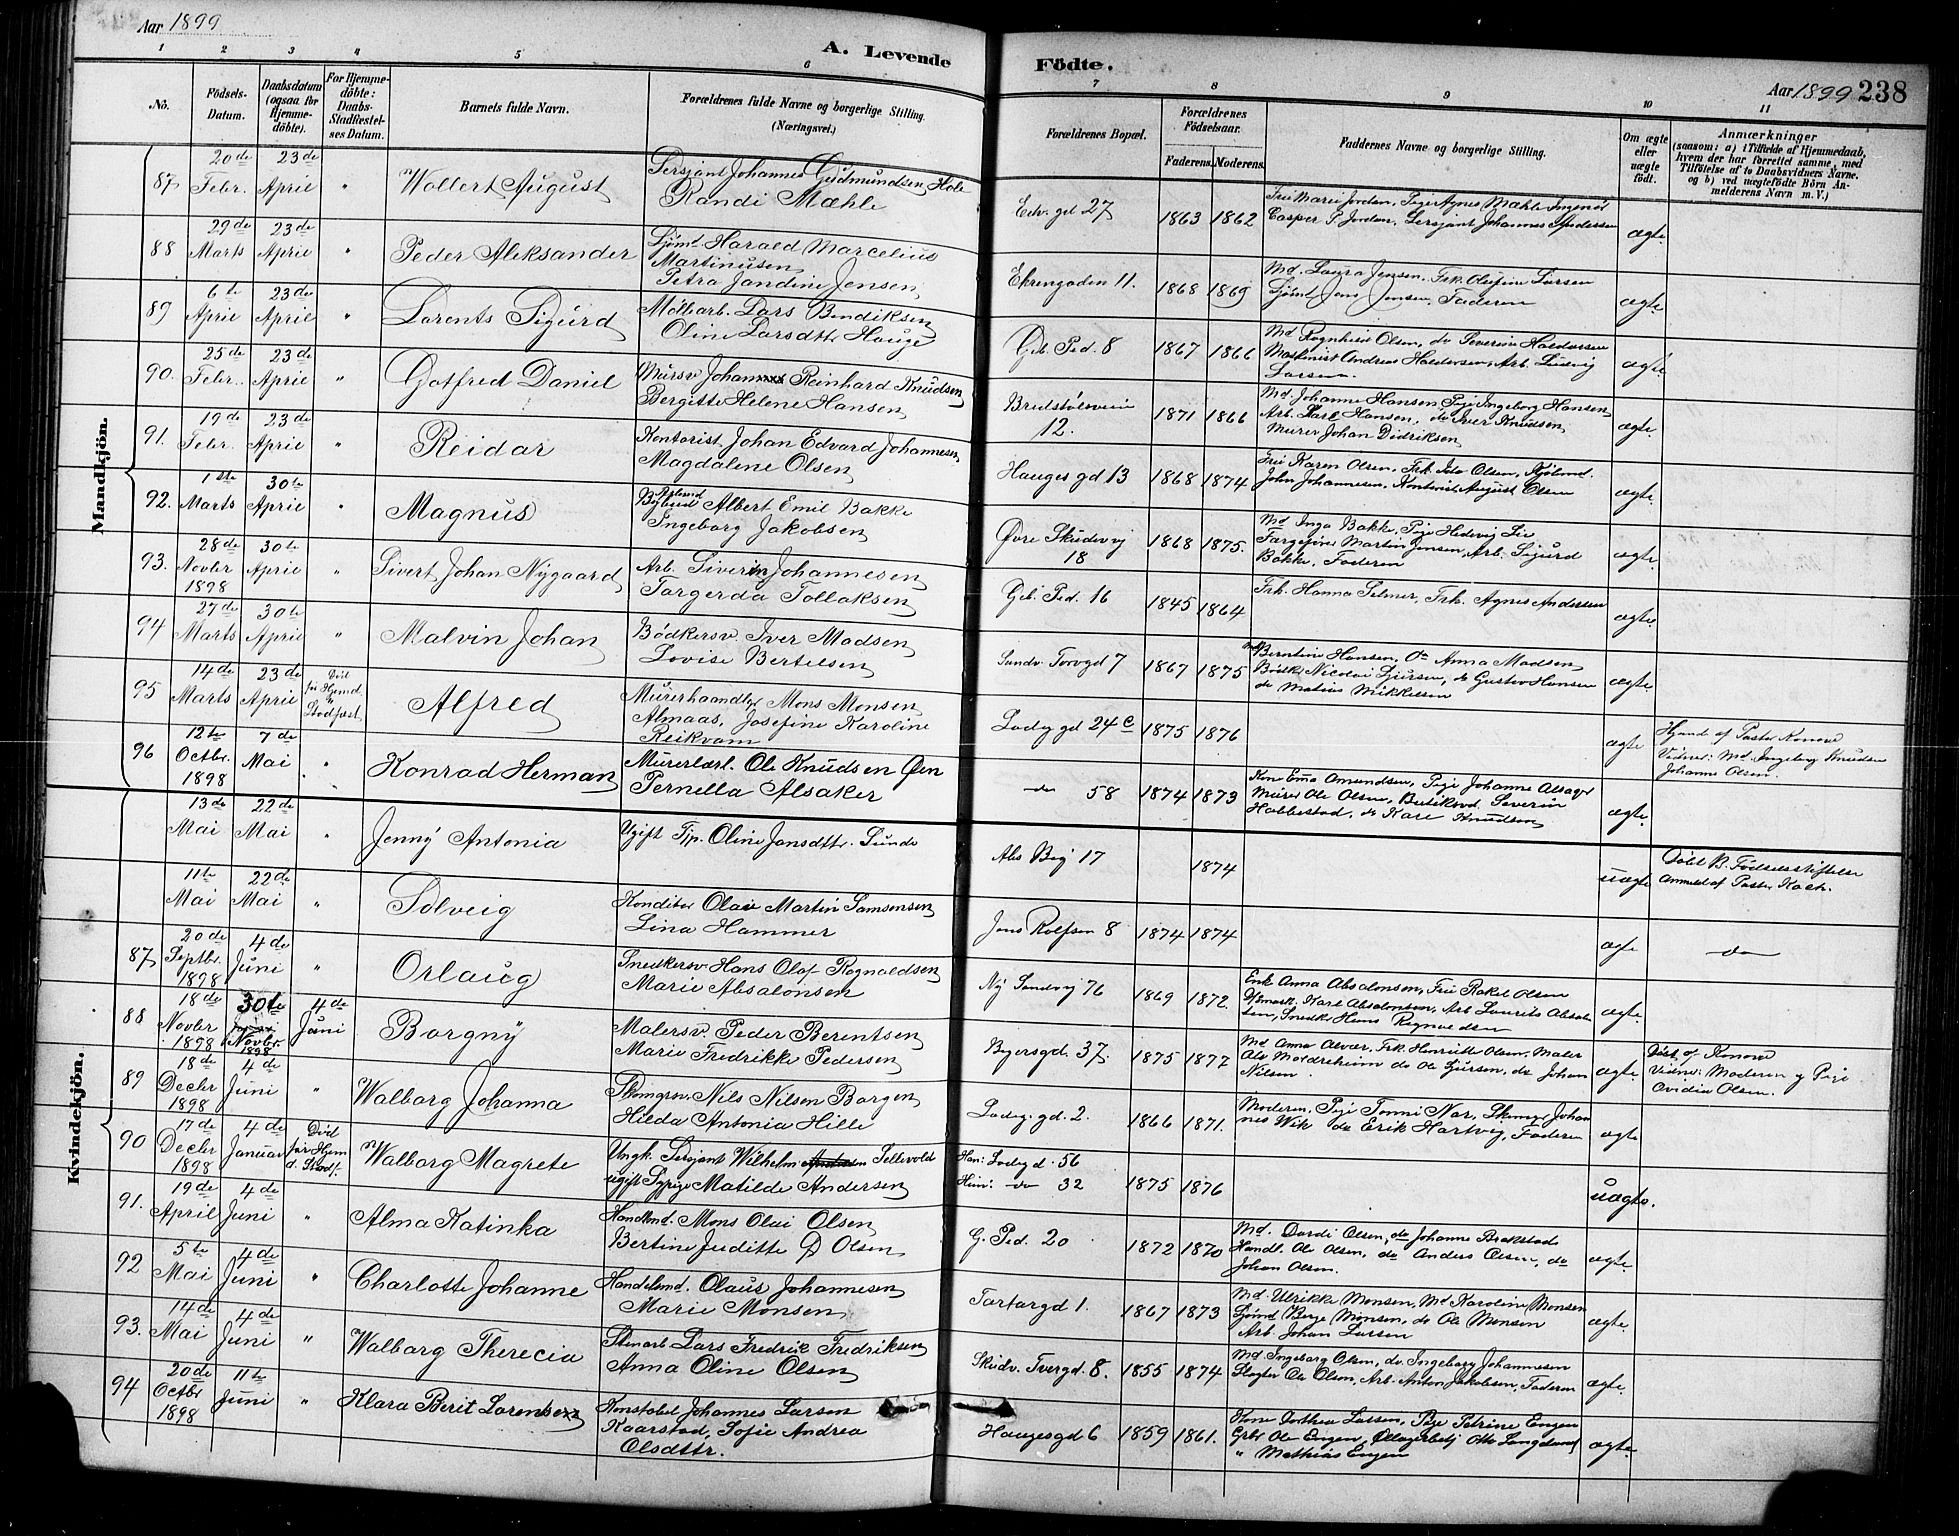 Aar 1899
A. Levende Födte.
Aar 1899 238
1 2 3 4 5 6 7 8 9 10 11
No.
Födsels-Datum.
Daabsdatum (ogsaa for Hjemme-döbte).
For Hjemme-döbte: Daabs-Stadfæstel-ses Datum.
Barnets fulde Navn.
Forældrenes fulde Navne og borgerlige Stilling. (Næringsvei.)
Forældrenes Bopæl.
Forældrenes Födselsaar.
Faderens. Moderens.
Faddernes Navne og borgerlige Stilling.
Om ægte eller uægte födt.
Anmærkninger (saasom: a) i Tilfælde af Hjemmedaab, hvem der har forrettet samme, med Tilföielse af to Daabsvidners Navne. og b) ved uægtefödte Börn An-melderens Navn m. V.)
Mandkjön.
87 20de Febr. 23de April " Wollert August Sersjant Johannes Gudmundsen Hole
Randi Mæhle Edv. gd 27 1863 1862 ægte
88 29de Marts 23de April " Peder Aleksander Sjömd Harald Marcelius
Martinusen
Petra Jandine Jensen Ekrengaden 11. 1868 1869 Md. Laura Jensen. Frk. Olefine Larsen
Sjömd Jens Jensen, Faderen ægte
89 6te April 23de April " Lorents Sigurd Möllearb. Lars Bendiksen
Oline Larsdtr Hauge Gb. Ped. 8 1867 1866 Md Ragnhild Olsen, do Severine Haldorsen
Maskinist Andreas Haldorsen, Arb. Ludvig
Larsen. ægte
90. 25de Febr. 23de April " Gotfred Daniel Mursv Johan Reinhard Knudsen
Bergitte Helene Hansen 12. 1871 1866 Md. Johanne Hansen, Pige Ingeborg Hansen
Arb. Karl Hansen, do Iver Knudsen,
Murer Johan Didriksen ægte
91. 19de Febr. 23de April " Reidar Kontorist Johan Edvard Johannesen
Magdalene Olsen Hauges gd 13 1868 1874 Frk Karen Olsen, Frk. Ida Olsen,
John Johannesen, Kontorist August Olsen ægte
92. 1ste Marts 30te April " Magnus Albert Emil Bakke
Ingeborg Jakobsen Övre Skudevig
18 1868 1875. Md Inga Bakke, Pige Hedevig Lie
Martin Jensen, Arb. Sigurd
Bakke, Faderen ægte
93. 28de Novbr 1898 30te April " Sivert Johan Nygaard Arb. Siverin Johannesen
Torgerda Tollaksen Gb. Ped. 16 1845 1864 Frk. Hanna Selmer, Frk. Agnes Andersen ægte
94 27de Marts 30te April " Malvin Johan Bödkersv. Iver Madsen
Lovise Bertelsen Sandv. Torvgd 7 1867 1875 Berntine Hansen, Anna Madsen
Nicolai Sjursen, do Gustav Hansen
do Matias Mikkelsen ægte
95 14de Marts 23de April Död för Hjemd. Stadfæst. Alfred Murerhaandl. Mons Monsen
Almaas, Josefine Karoline
Reikvam Ladeg gd 24c 1875 1876 ægte Hjemd af Pastor Konow
Vidner: Md. Ingeborg Knudsen
Johanne Olsen.
96 12te Octbr. 1898 7de Mai " Konrad Herman Murerlærl. Ole Knudsen Öen
Pernella Alsaker do 58 1874 1873 Kone Ema Amundsen, Pige Johanne Alsager
Murer Ole Olsen, Severin
Habbestad, do Kare Knudsen ægte
Kvindekjön.
13de Mai 22de Mai " Jenny Antonia Ugift Tjp. Oline Jonsdttr. Sunde 17 1874 uægte Döbt B. Födselsstiftelse
Anmeld af Pastor Koch.
11te Mai 22de Mai " Solveig Konditor Olav Martin Samsonsen
Lina Hammer Jens Rolfsen 8 1874 1874 ægte do
87 20de Septbr. 1898 4de Juni " Orlaug Snedkersv. Hans Olaf Ragnaldsen
Marie Absalonsen Ny Sandvig 76 1869 1872. Enk Anna Absalonsen, Frk Rakel Olsen
Karl Absalonsen, Arb Laurits Absalon-
sen, Snedker Hans Regnvaldsen ægte
88 18de Novbr 1898 30te Novbr. 1898 4de Juni Borgny Malersv Peder Berentsen
Marie Fredrikke Pedersen Byersgd. 37. 1875 1877 Md Anna Alvær, Frk. Henriette Olsen, Maler
Ole Mordreheim do Ole Sjursen, do Johan
Nilsen ægte Döbt af Konow
Vidner: Moderen og Pige
Ovidia Olsen.
89 18de Decbr 1898 4de Juni " Walborg Johanna Skomgrsv. Nils Nilsen Borgen
Hilda Antonia Hille Ladeg. gd. 2. 1866 1871. Moderen, Pige Tonni Nor, Skomgr Johan
nes Wik do Erik Hartvig, Faderen ægte
90 17de Decbr 1898 4de Januar Död för Hjem d. Stadf. Walborg Magrete Ungk. Sersjant Wilhelm Sellevold
ugift Sypige Matilde Andersen Han: Ladeg d. 56
Hun: do 32 1875 1876 uægte.
91. 19de April 4de Juni " Alma Katinka Handlmd. Mons Olai Olsen
Bertine Juditte D Olsen G. Ped. 20 1872 1870 Md. Dordi Olsen, do Johanne Brakstad
Handl. Ole Olsen, do Anders Olsen, do
Johan Olsen. ægte
92 5te Mai 4de Juni " Charlotte Johanne Handelsmd. Olaus Johannesen
Marie Monsen Tartargd 1. 1867 1873 Md Ulrikke Monsen, Md Karoline Monsen
Sjömd Berje Monsen, do Ole Monsen
Arb. Johan Larsen ægte
93. 14de Mai 4de Juni " Walborg Therecia Stenarb Lars Fredrik Fredriksen
Anna Oline Olsen Skudv. Tvergd. 8. 1855 1874 Md Ingeborg Olsen, do Ingeborg Johannesen
Slagter Ole Olsen, Arb. Anton Jakobsen, Faderen ægte
94 20de Octbr 1898 11te Juni " Klara Berit Lorentsen Konstabel Johannes Larsen
Kaarstad, Sofie Andrea
Olsdttr. Haugesgd 6 1859 1861. Kone Dorthea Larsen, Pige Petrine Engen
Ole Engen, Otto Langeland
" Mathias Engen ægte